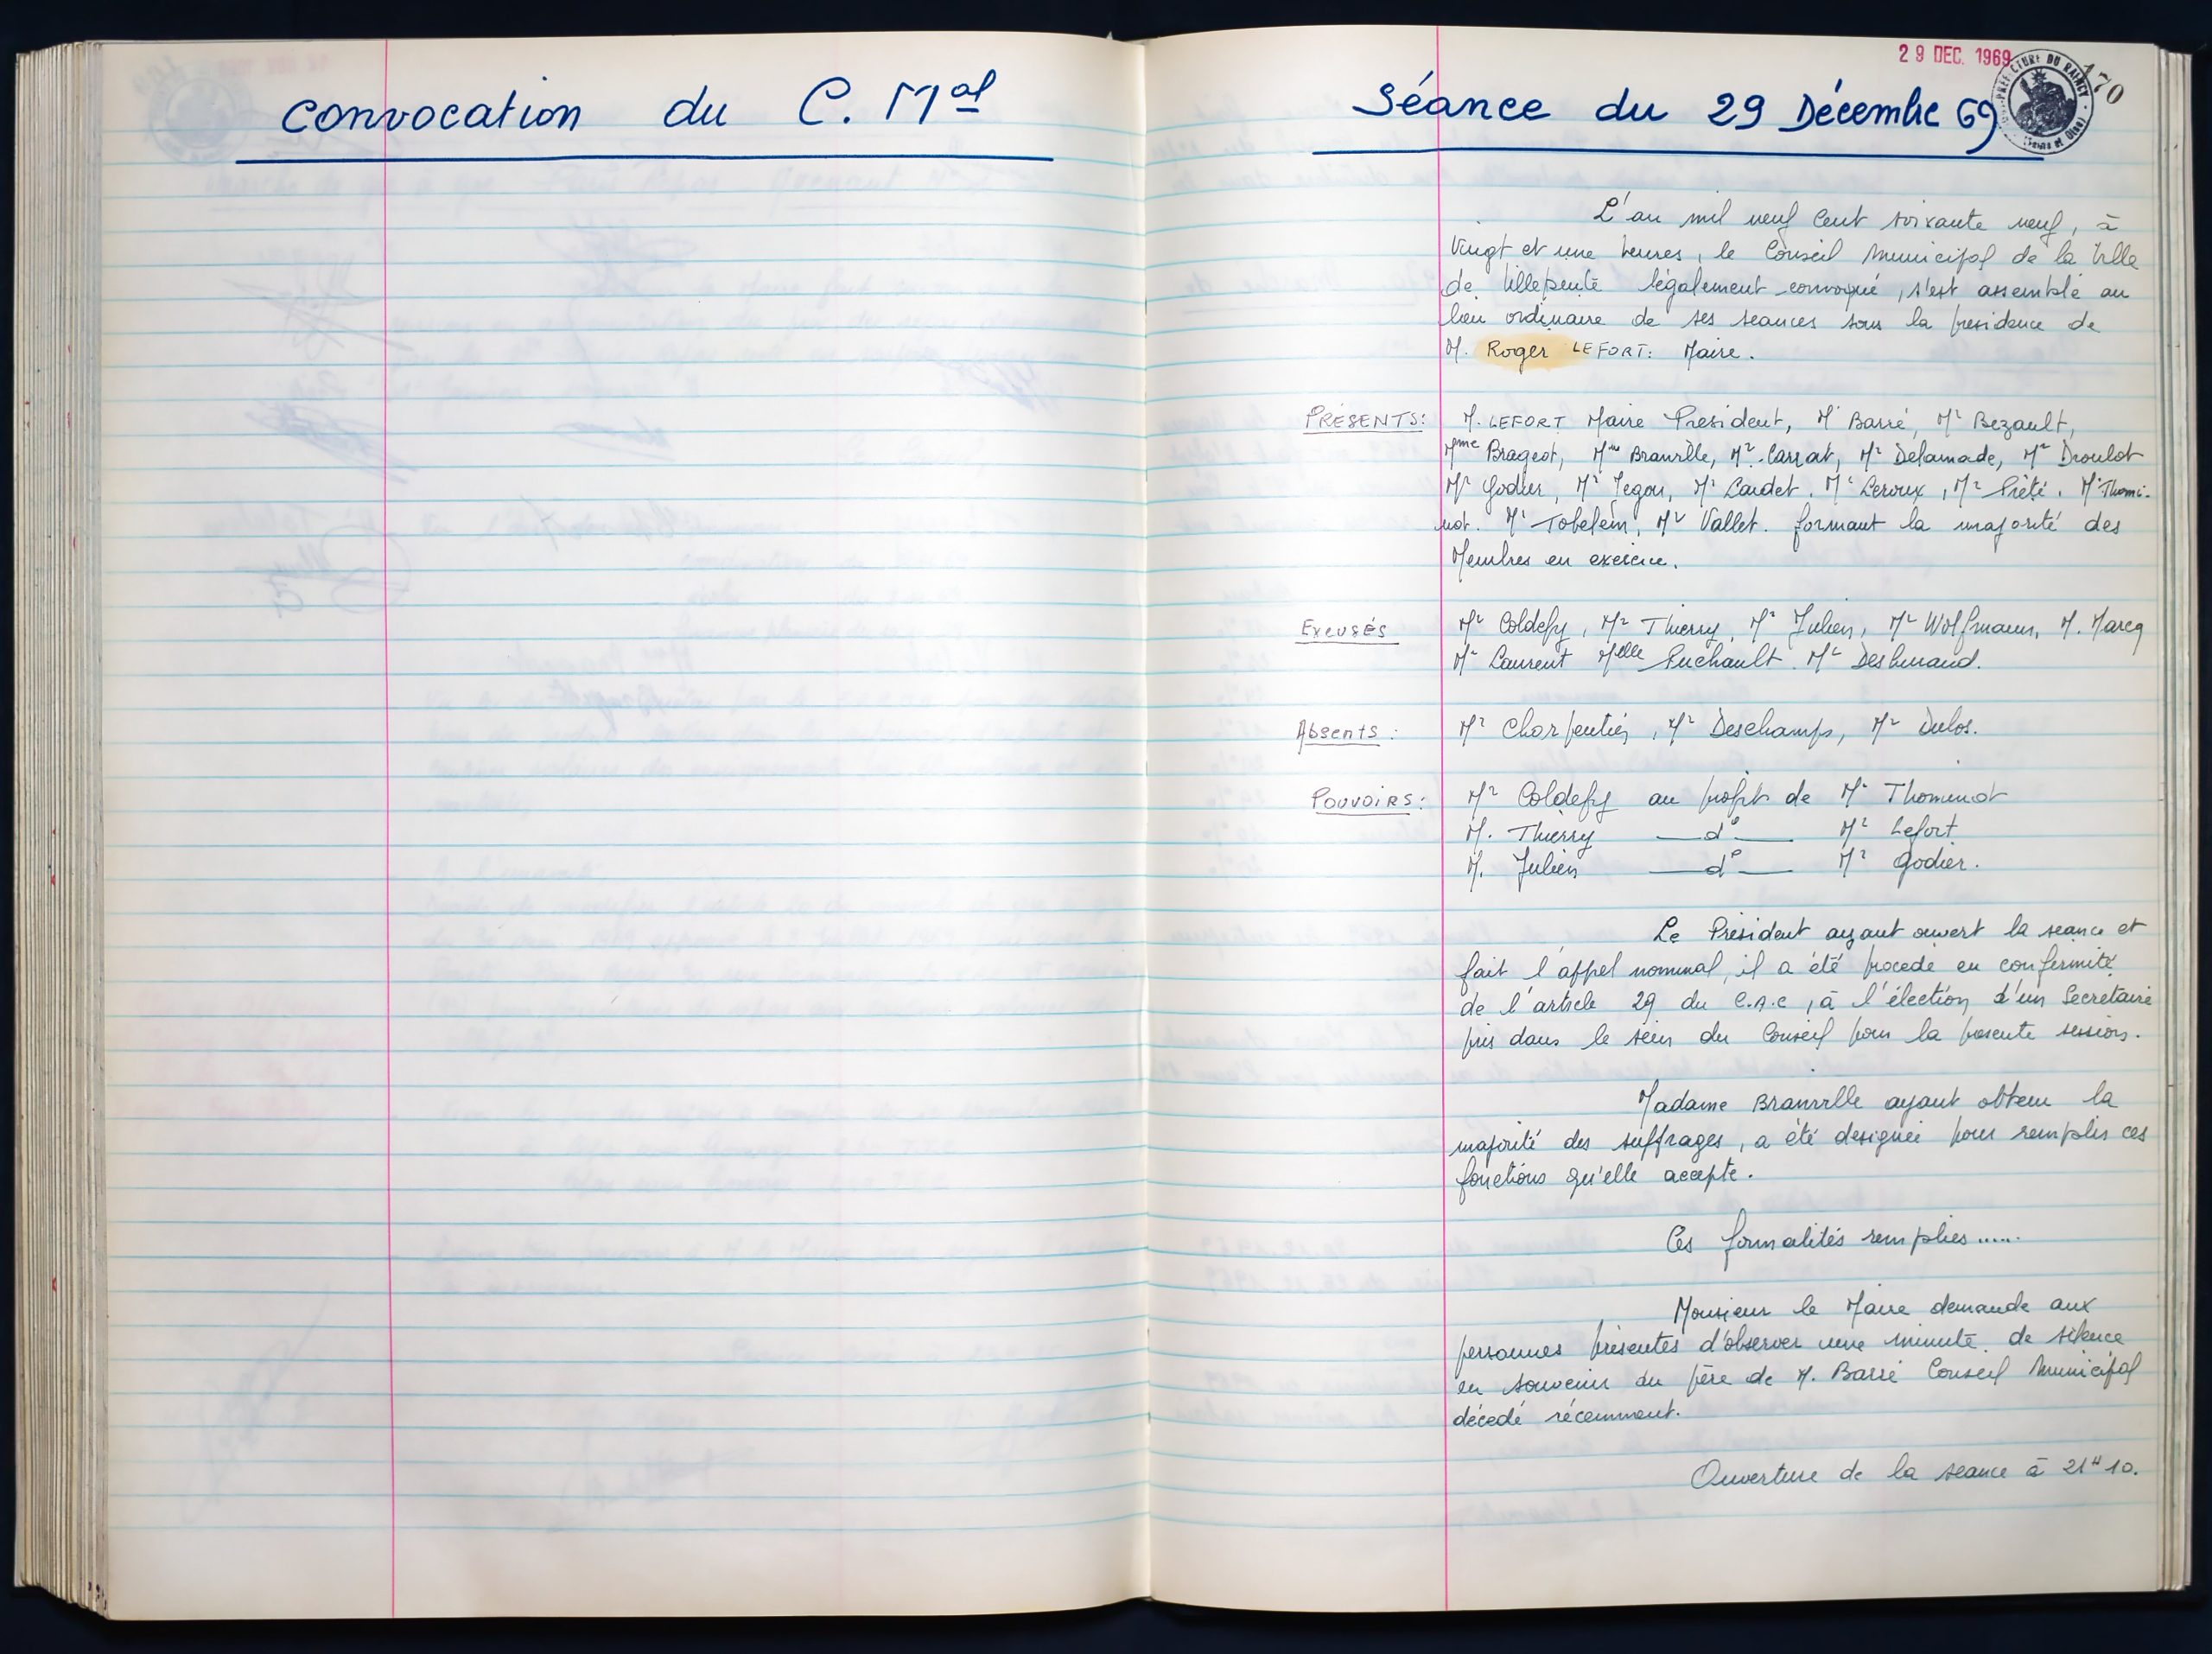 convocation du C. Mal
29 DEC. 1969
170
Séance du 29 Décembre 69
L'an mil neuf cent soixante neuf, à
vingt et une heures, le Conseil Municipal de la Ville
de Villepinte légalement convoqué, s'est assemblé au
lieu ordinaire de ses séances sous la présidence de
M. Roger LEFORT. Maire.
PRÉSENTS: M. LEFORT Maire Président, Mr Barré, Mr Bezault,
Mme Brageot, Mme Branville, Mr Carrat, Mr Delamade, Mr Droulot
Mr Godier, Mr Jegou, Mr Lardet. Mr Leroux, Mr Piété. Mr Thomi-
not. Mr Tobelem, Mr Vallet. formant la majorité des
Membres en exercice.
Excusés Mr Coldefy, Mr Thierry, Mr Julien, Mr Wolfmann, M. Marcq
Mr Laurent Melle Puchault. Mr
Absents: Mr Charpentier, Mr Deschamps, Mr Dulos.
Pouvoirs: Mr Coldefy au profit de Mr Thominot
M. Thierry — d° — Mr Lefort
M. Julien — d° — Mr Godier.
Le Président ayant ouvert la séance et
fait l'appel nominal, il a été procédé en conformité
de l'article 29 du C.A.C, à l'élection d'un Secrétaire
pris dans le sein du Conseil pour la présente session.
Madame Branville ayant obtenu la
majorité des suffrages, a été désignée pour remplir ces
fonctions qu'elle accepte.
Ces formalités remplies.....
Monsieur le Maire demande aux
personnes présentes d'observer une minute de silence
en souvenir du père de M. Barré Conseil Municipal
décédé récemment.
Ouverture de la séance à 21H10.